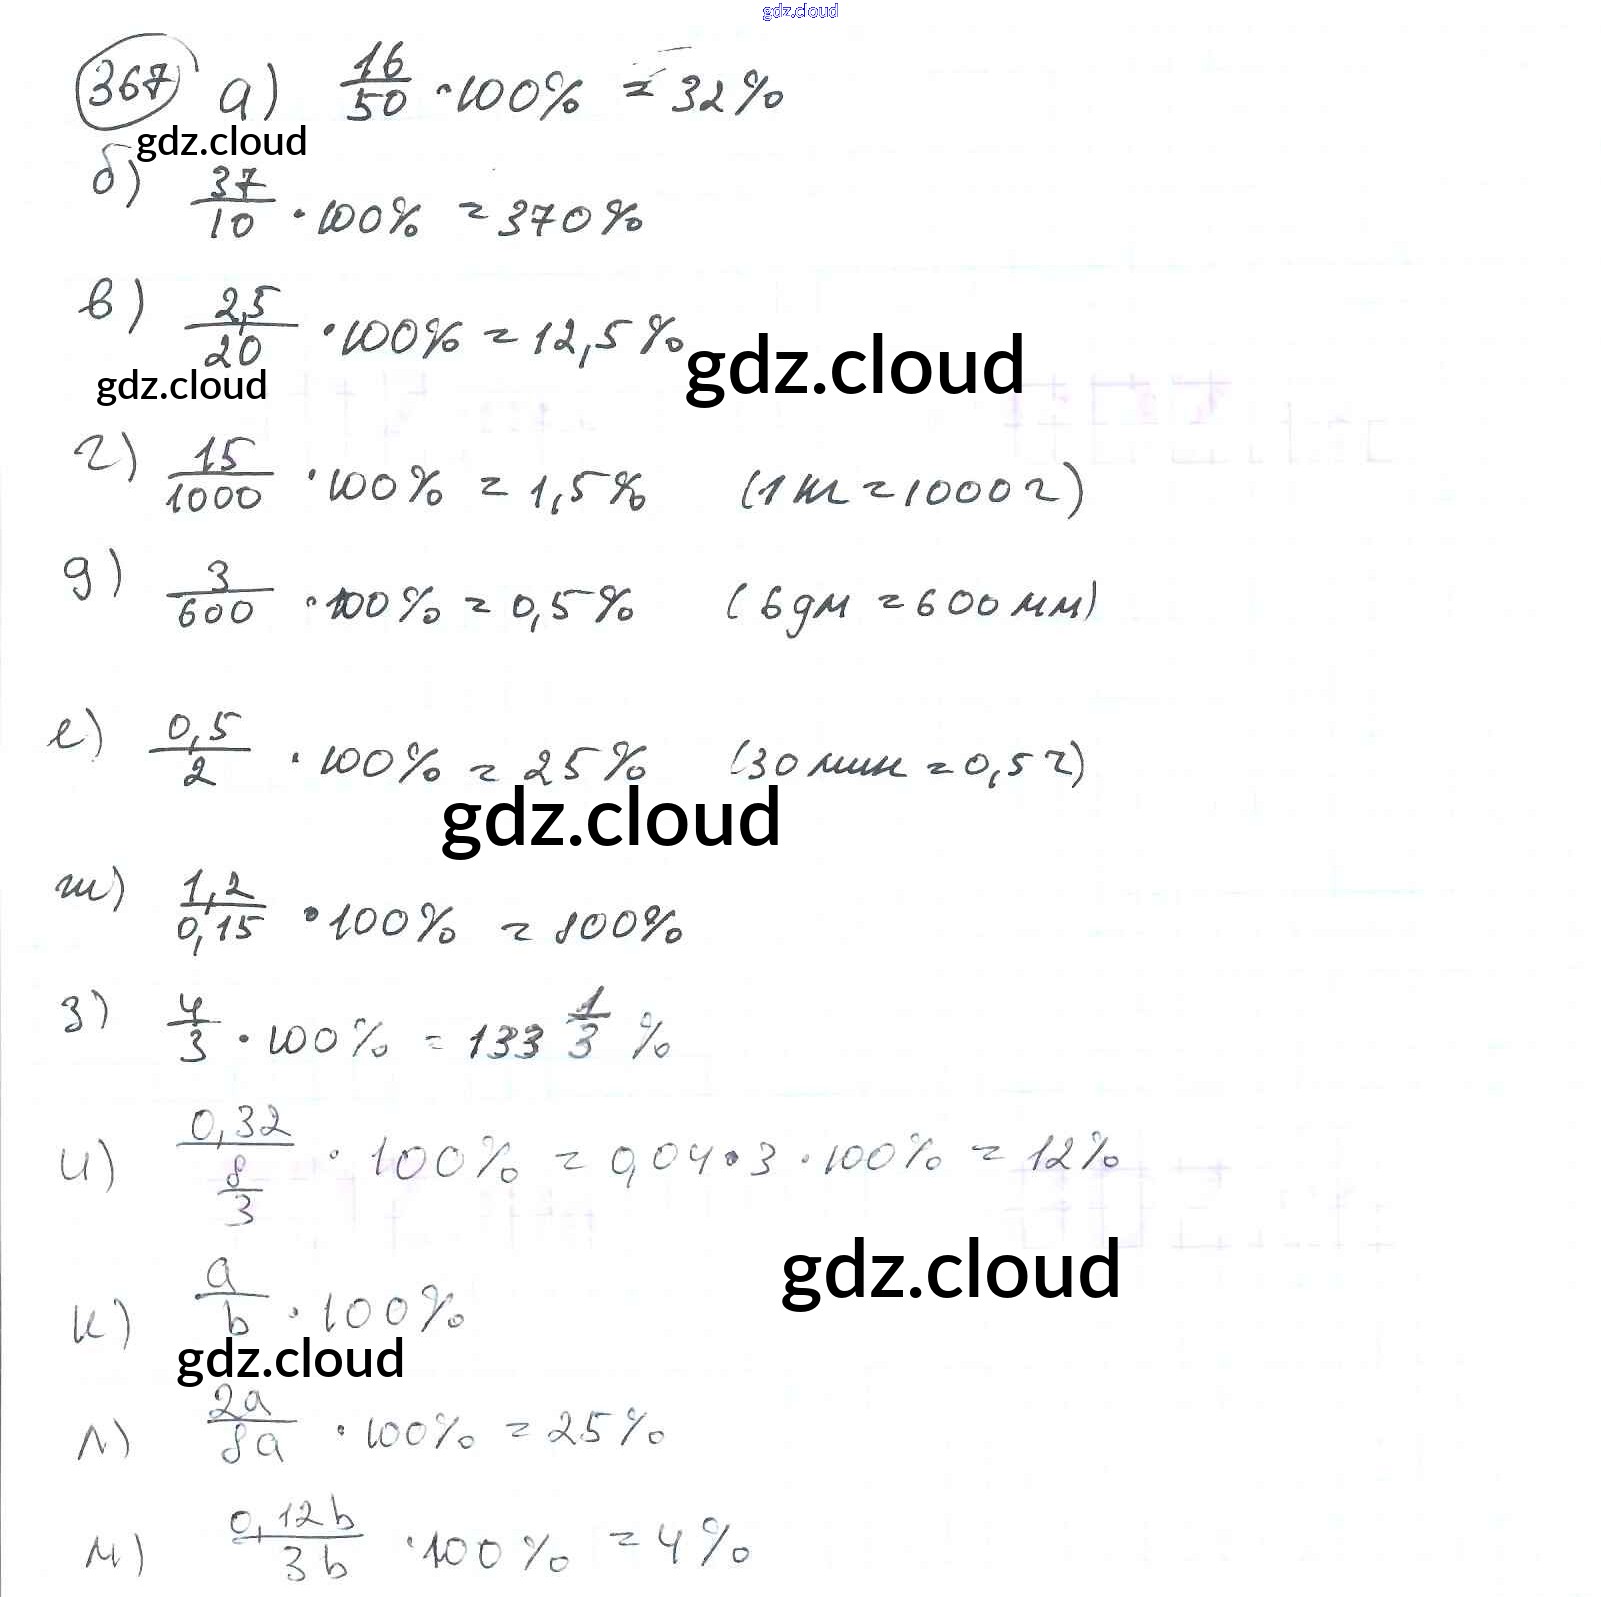 gdz.cloud
367 а) 16/50 · 100% = 32%
gdz.cloud
б) 37/10 · 100% = 370%
в) 2,5/20 · 100% = 12,5%
gdz.cloud
gdz.cloud
г) 15/1000 · 100% = 1,5% (1 т = 1000 г)
д) 3/600 · 100% = 0,5% (6 дм = 600 мм)
е) 0,5/2 · 100% = 25% (30 мин = 0,5 ч)
gdz.cloud
ж) 1,2/0,15 · 100% = 800%
з) 4/3 · 100% = 133 1/3 %
и) 0,32/(8/3) · 100% = 0,04 · 3 · 100% = 12%
gdz.cloud
к) a/b · 100%
gdz.cloud
л) 2a/8a · 100% = 25%
м) 0,12b/3b · 100% = 4%